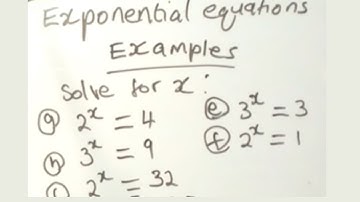 Exponential equations
Examples
Solve for x:
(a) 2^x = 4
(b) 3^x = 9
2^x = 32
(e) 3^x = 3
(f) 2^x = 1